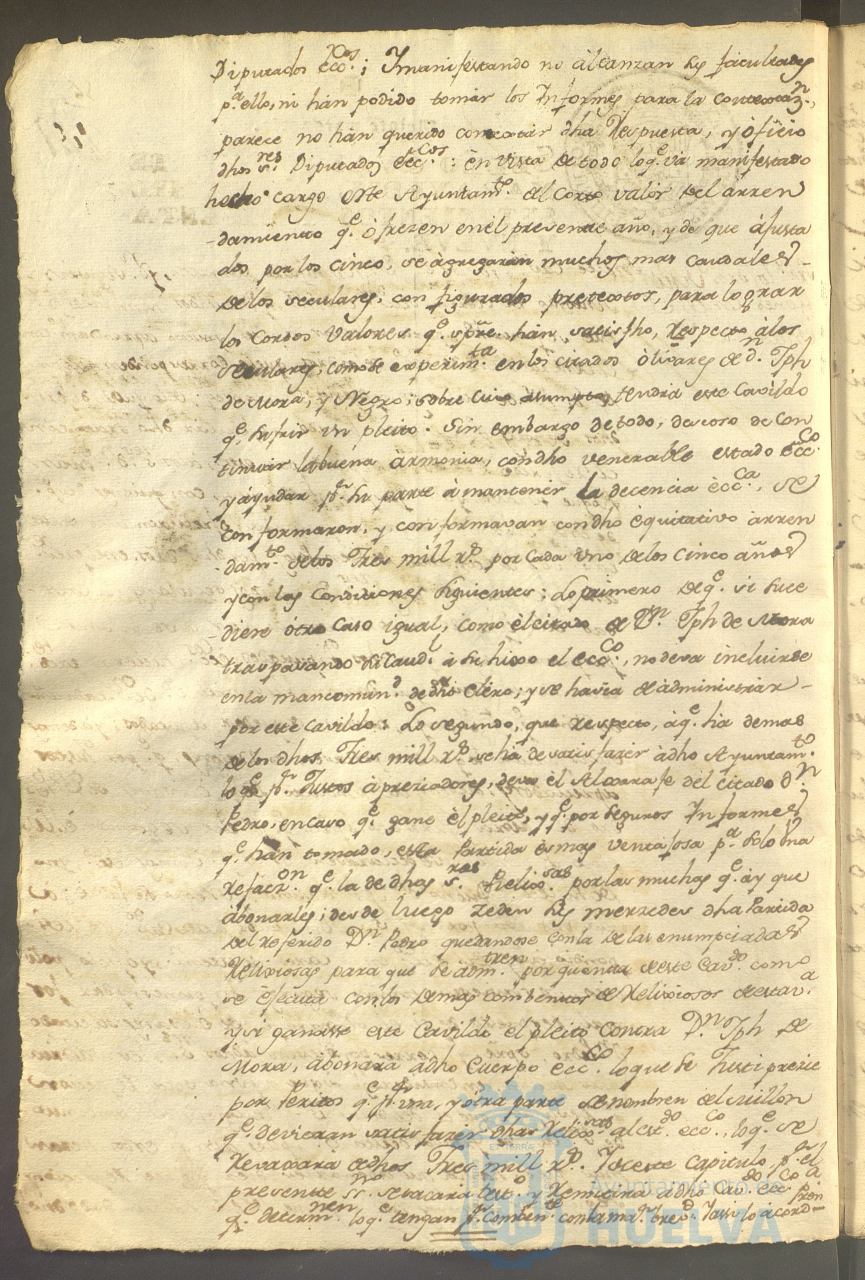 Diputados ecc.cos; Y manifestando no alcanzan sus facultades
p.a ello, ni han podido tomar los Informes para la contextaz.n,
parece no han querido contextar dha Respuesta, y ofizio
dhos s.res Diputados ecc.cos: en vista de todo lo q.e va manifestado
hecho cargo este Ayuntam.to del Corto valor del arren
damiento q.e ofrezen en el presente año, y de que ajusta
dos, por los cinco, se agregarán muchos mas caudales
de los seculares, con figurados pretextos, para lograr
los Cortos Valores q.e spre. han satisfho, Respecto a los
seculares, como se experim.ta en los citados olivares de d.n Jph
de Mora, y Negro; sobre cuio asumpto, tendria este Cavildo
q.e sufrir un pleito. Sin embargo de todo, deseoso de Con
tinuar la buena armonia, con dho venerable estado ecc.co
y ayudar p.r su parte à mantener la decencia ecc.ca, se
conformaron, y conformavan con dho equitativo arren
dam.to de los Tres mill r.s por cada uno de los cinco años
y con las Condiciones siguientes; Lo primero de q.e si suce
diere otro Caso igual, como el citado de D.n Jph de Mora
traspasando su Caud.l à su hixo el ecc.co, no deva incluirse
en la mancomun.d de dho Clero; y se havia de administrar
por este Cavildo: Lo segundo, que respecto, à q.e ha demas
de los dhos Tres mill r.s se ha de satisfazer à dho Ayuntam.to
lo q.e p.r Justos apreziadores, deva el Aloxarafe del citado D.n
Pedro, en caso q.e gane el pleito, y q.e por seguros Informes
q.e han tomado, esta Partida es mas ventajosa p.a solo una
refacz.on q.e la de dhas s.ras Relixio.sas por las muchas q.e ay que
abonarles; desde luego zeden sus merzedes dha Partida
del referido D.n Pedro quedandose con la de las enumpciadas
Relixiosas para que se adm.tren por quenta de este Cav.do como
se efectua con los demas combentos de Relixiosos de esta v.a
y si ganase este Cavildo el pleito contra D.n Jph de
Mora, abonara a dho Cuerpo ecc.co lo que se Justiprezie
por Peritos q.e p.r una, y otra parte se nombren del Millon
q.e devieran satisfazer dhas Relixio.sas al est.do ecc.co, lo q.e se
revaxará de dhos Tres mill r.s Y de este Capitulo p.r el
presente ss.no se sacara test.o y Remitira a dho Cav.do ecc.co p.a
q.e determ.nen lo q.e tengan p.r comben.te Y assi lo acord.ron
Ayuntamiento de
HUELVA